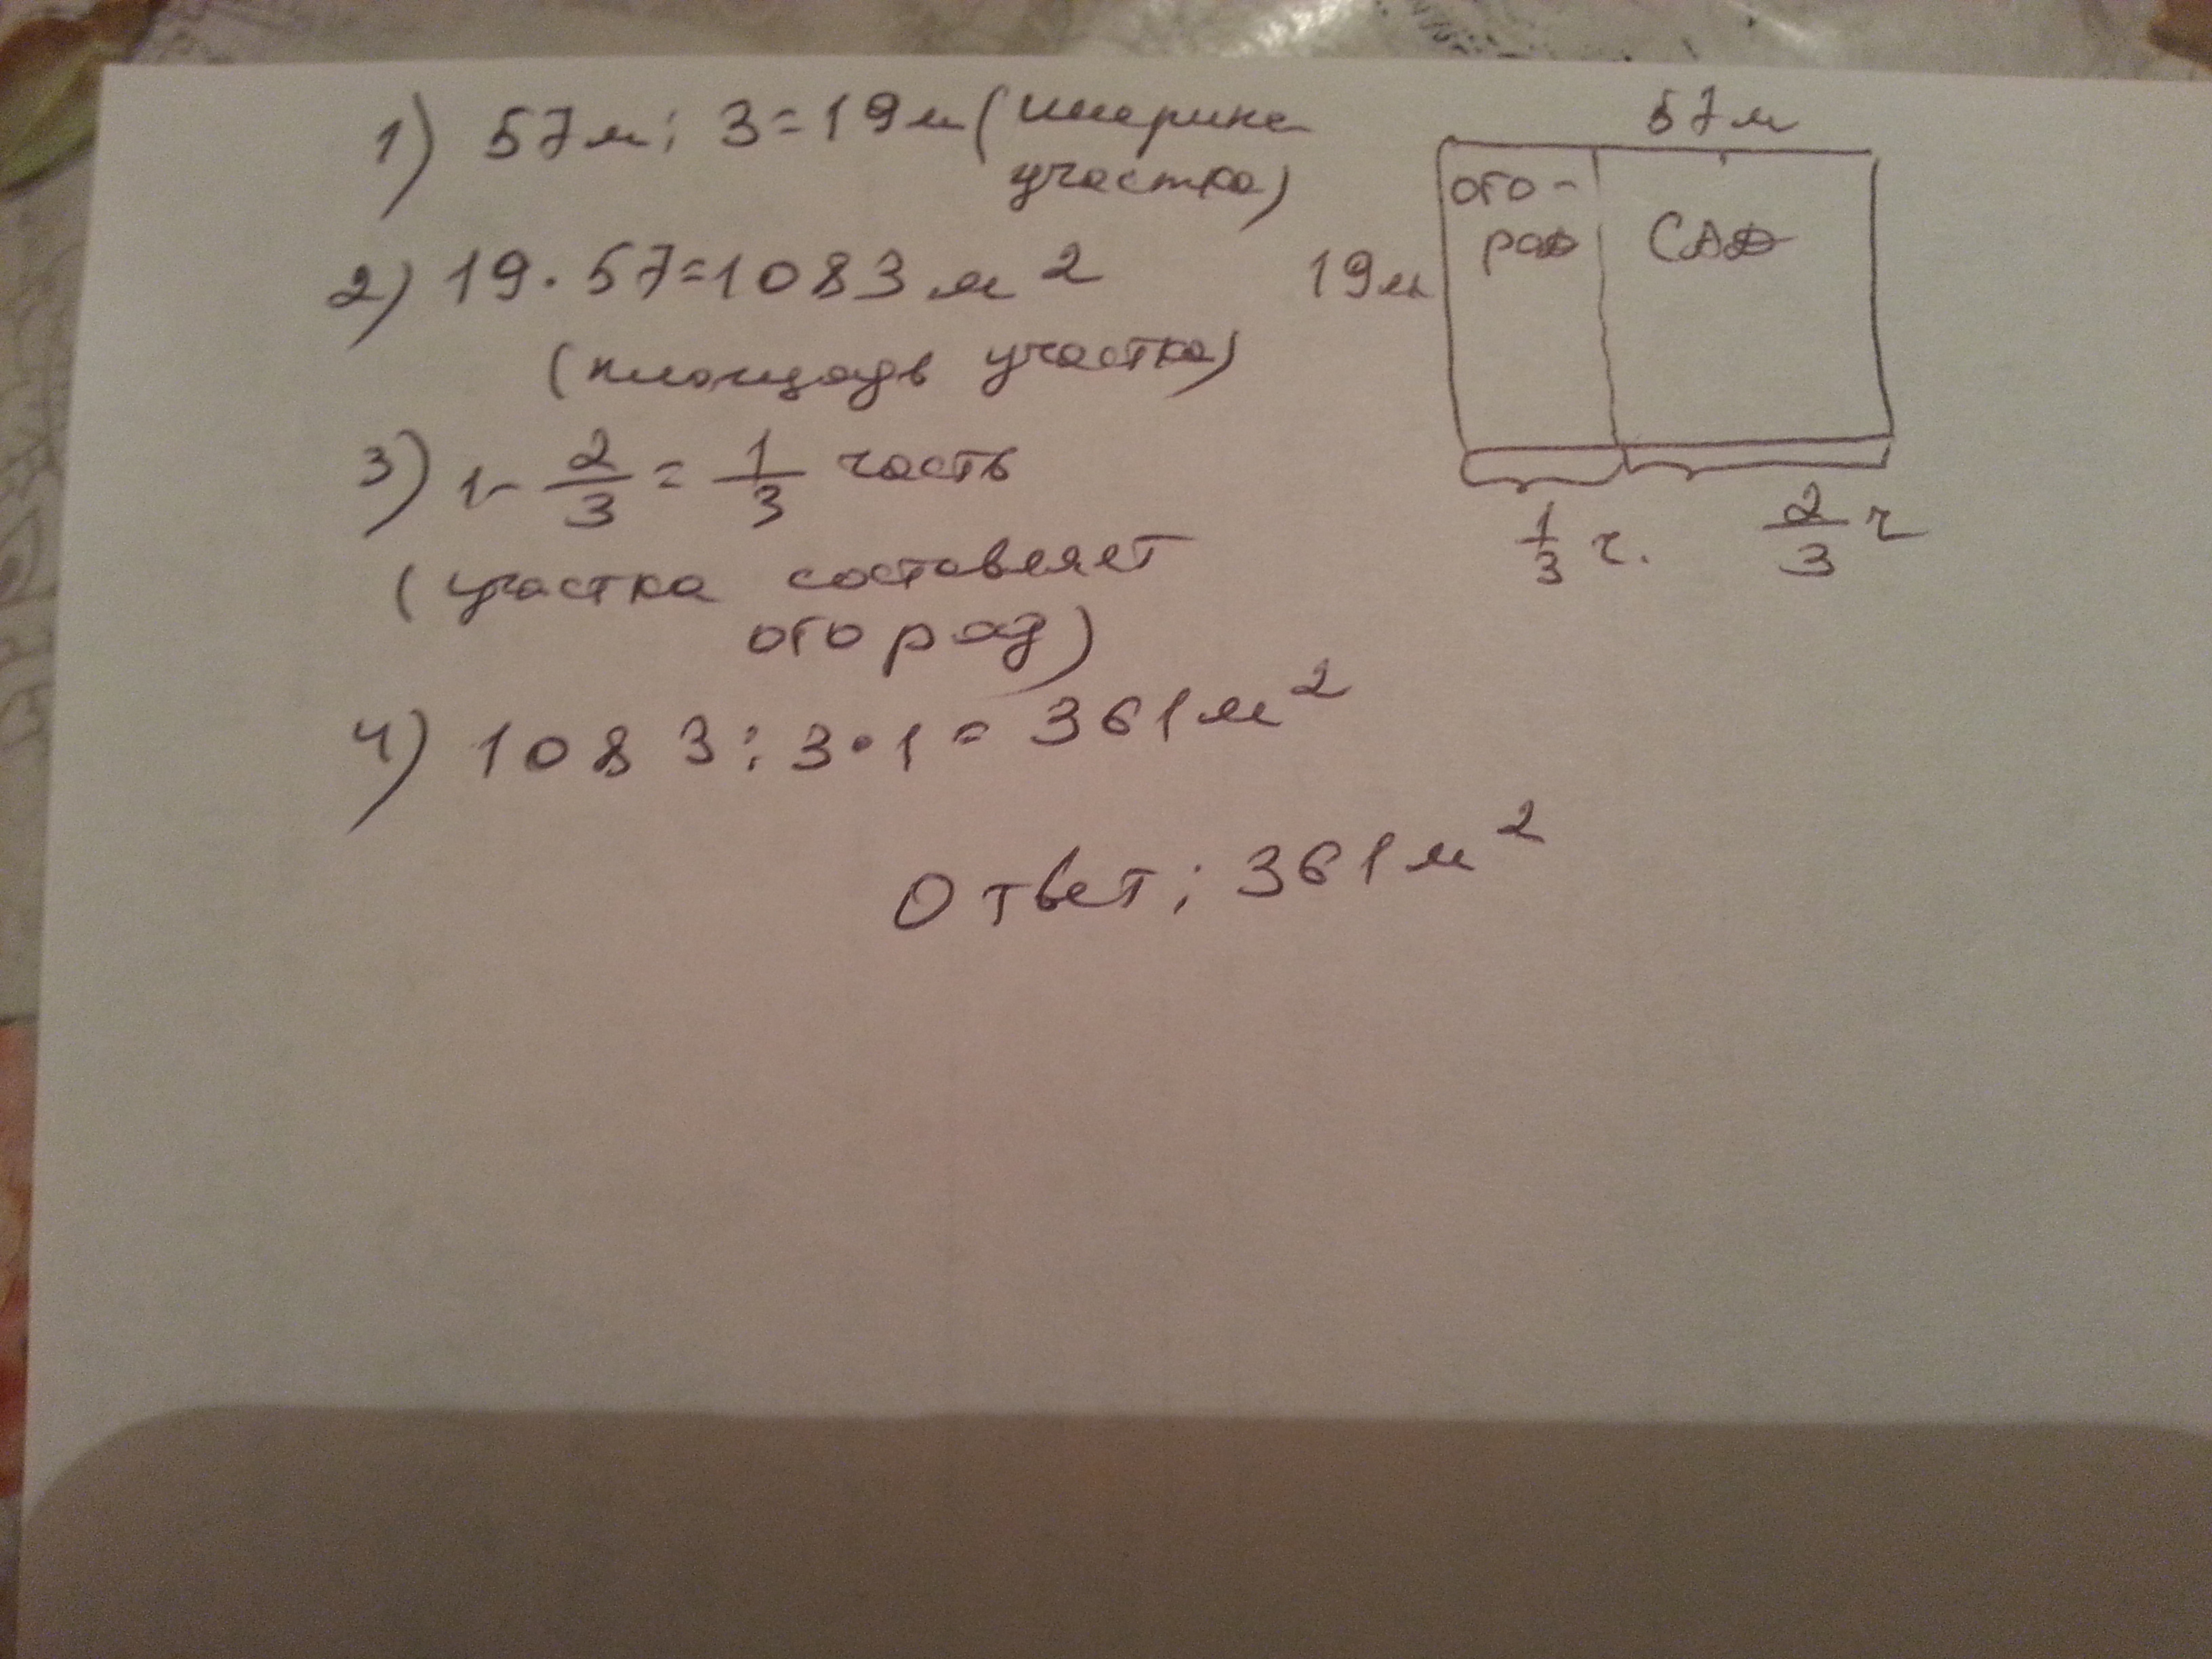 1) 57м : 3 = 19м (ширина
участка)
2) 19 · 57 = 1083 м²
(площадь участка)
3) 1 - 2/3 = 1/3 часть
(участка составляет
огород)
4) 1083 : 3 · 1 = 361 м²
Ответ: 361 м²
57м
ого-
род САД
19м
1/3 ч. 2/3 ч